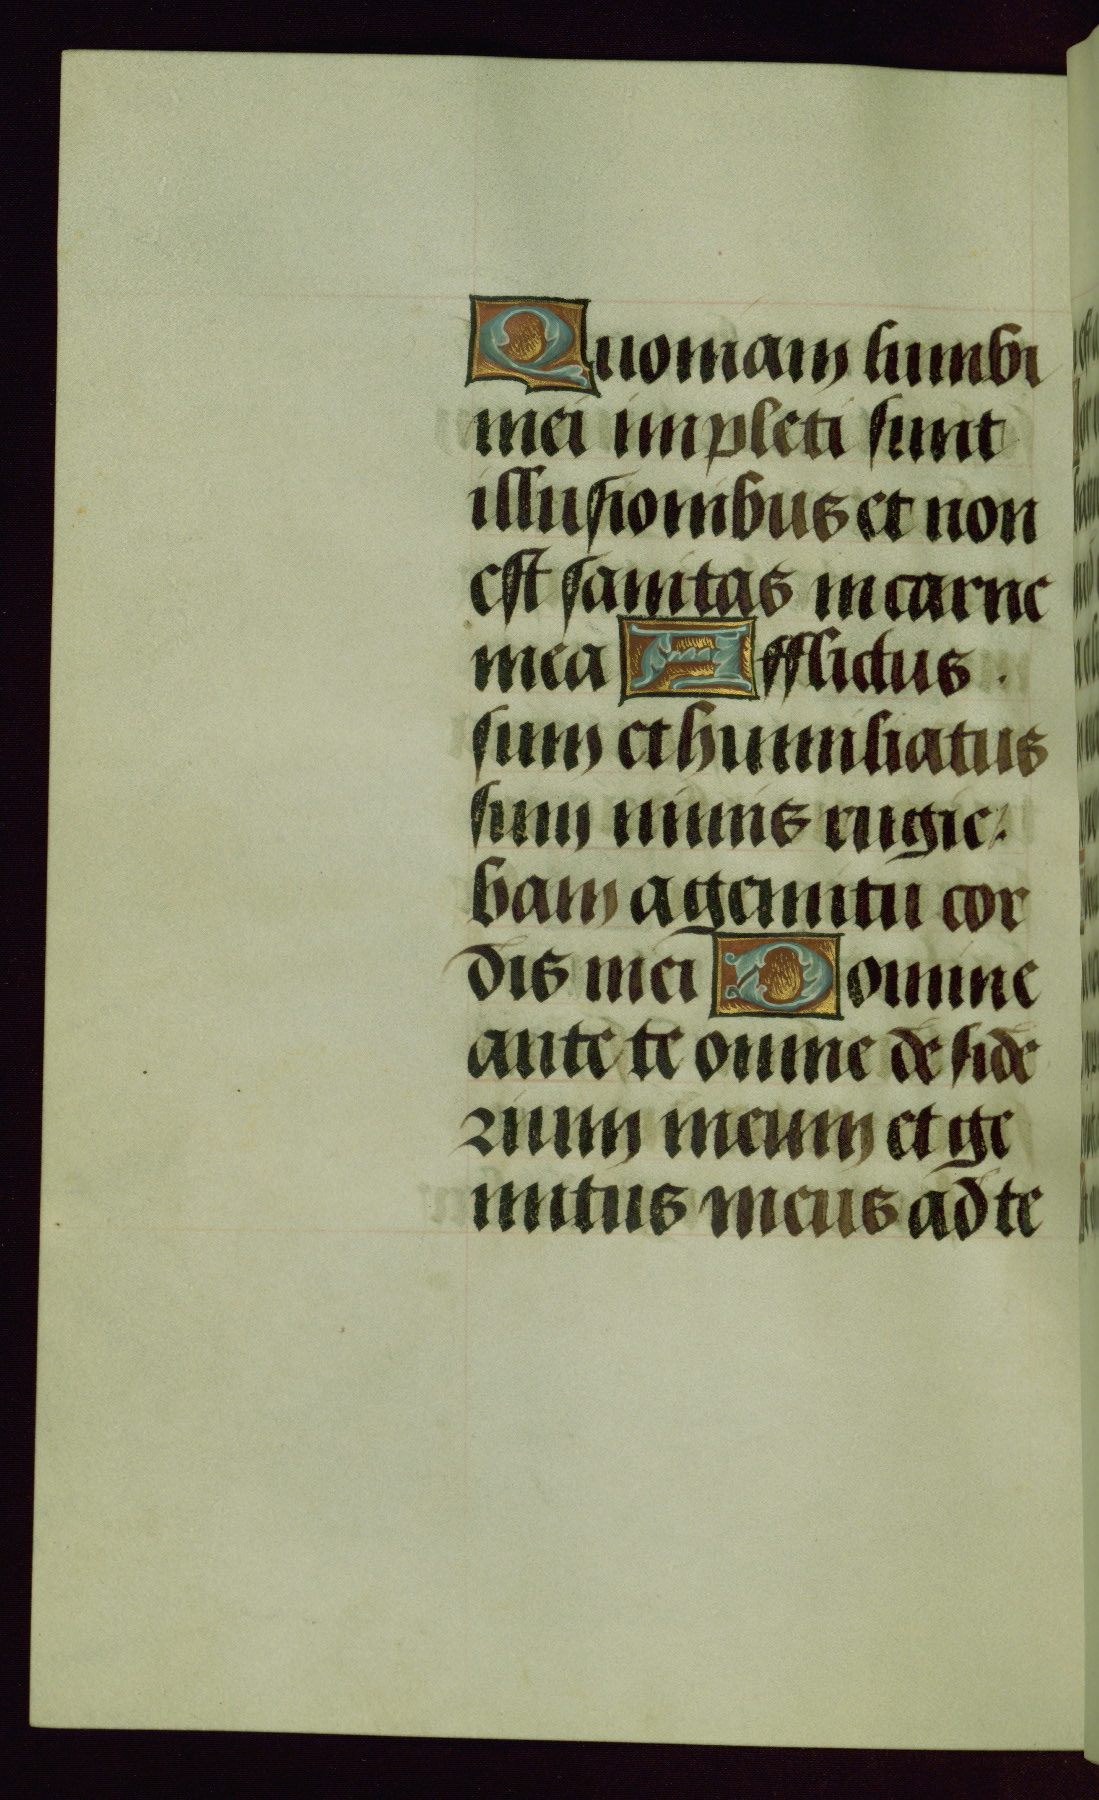 Quoniam lumbi
mei impleti sunt
illusionibus et non
est sanitas in carne
mea Afflictus
sum et humiliatus
sum nimis rugie
bam a gemitu cor
dis mei Domine
ante te omne deside
rium meum et ge
mitus meus ad te